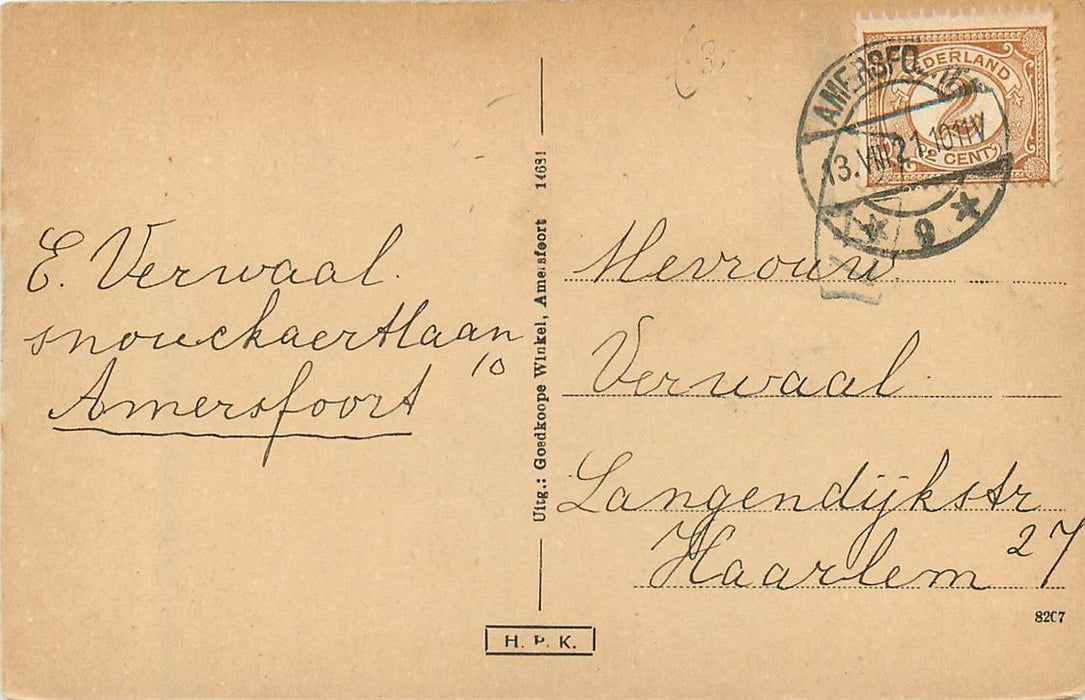 E. Verwaal.
snouckaertlaan
10
Amersfoort
Uitg.: Goedkoope Winkel, Amersfoort 14681
NEDERLAND
2
CENT
AMERSFO
13.VIII.21.10-11V
9
Mevrouw
Verwaal.
Langendijkstr
27
Haarlem
8207
H. P. K.